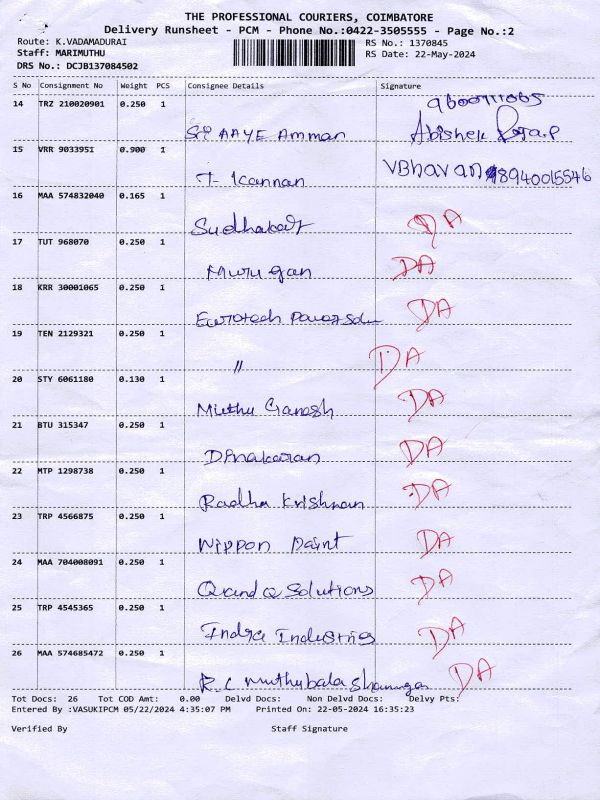 THE PROFESSIONAL COURIERS, COIMBATORE
Delivery Runsheet - PCM - Phone No.:0422-3505555 - Page No.:2
Route: K.VADAMADURAI RS No.: 1370845
Staff: MARIMUTHU RS Date: 22-May-2024
DRS No.: DCJB137084502
S No Consignment No Weight PCS Consignee Details Signature
14 TRZ 210020901 0.250 1
Sri AAYE Amman Abishek
15 VRR 9033951 0.900 1
T. Kannan VBhavan 8940015546
16 MAA 574832040 0.165 1
Sudhakar DA
17 TUT 968070 0.250 1
Murugan DA
18 KRR 30001065 0.250 1
Eurotech Power DA
19 TEN 2129321 0.250 1
" DA
20 STY 6061180 0.130 1
Muthu Ganesh DA
21 BTU 315347 0.250 1
Dinakaran DA
22 MTP 1298738 0.250 1
Radha Krishnan DA
23 TRP 4566875 0.250 1
Nippon Paint DA
24 MAA 704008091 0.250 1
Q and Q Solutions DA
25 TRP 4545365 0.250 1
Indra Industries DA
26 MAA 574685472 0.250 1
R.C Muthubala DA
Tot Docs: 26 Tot COD Amt: 0.00 Delvd Docs: Non Delvd Docs: Delvy Pts:
Entered By :VASUKIPCM 05/22/2024 4:35:07 PM Printed On: 22-05-2024 16:35:23
Verified By Staff Signature